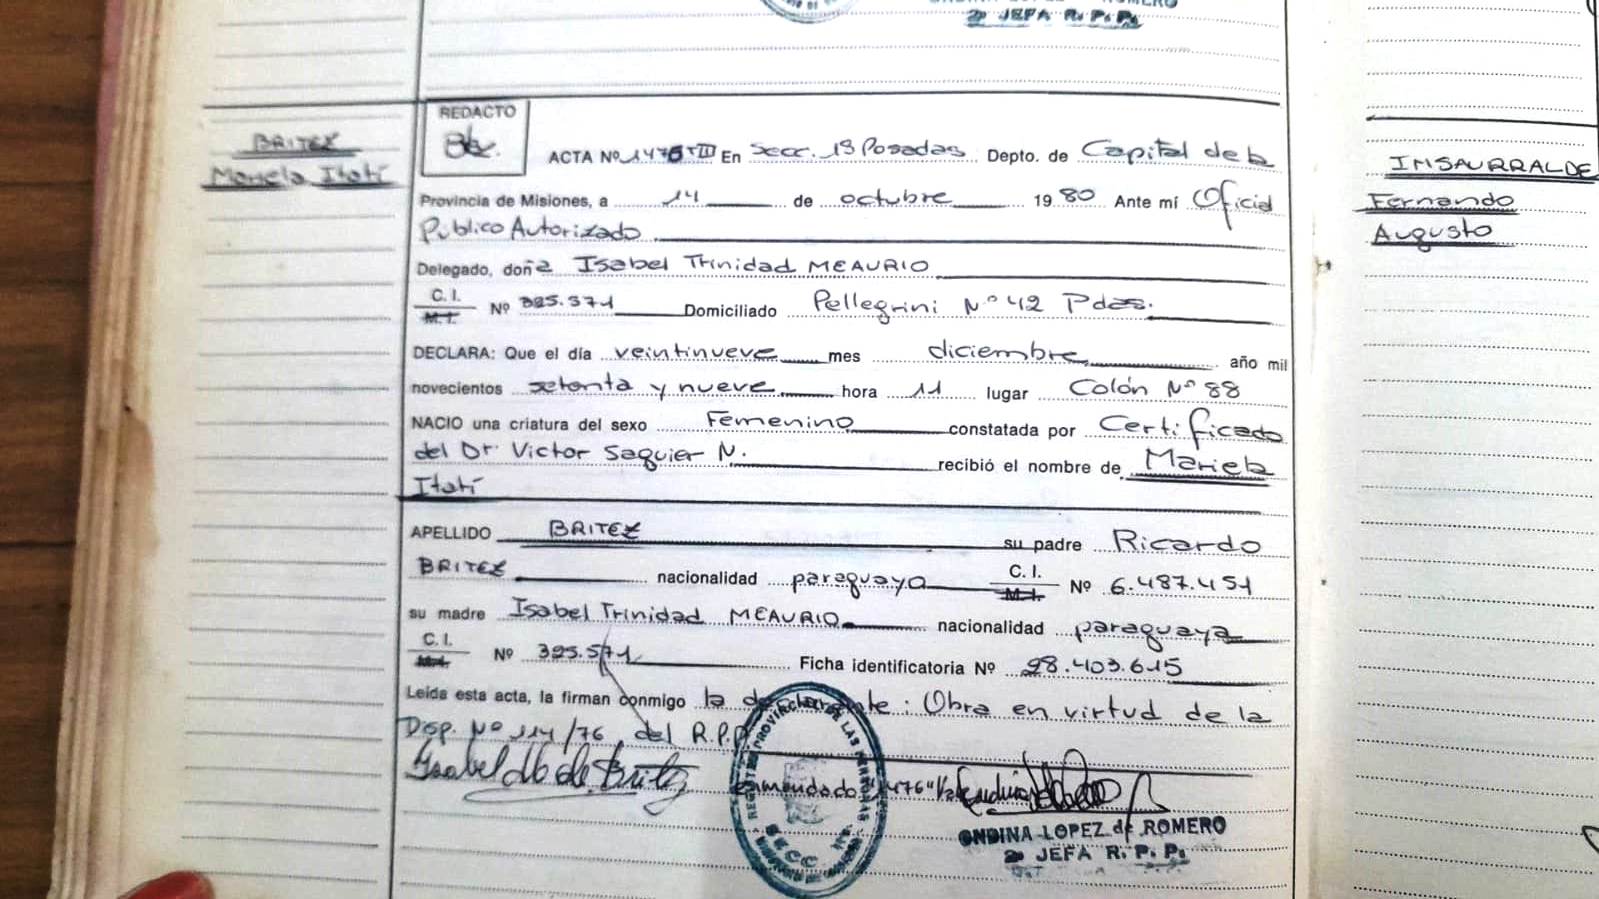 LOPEZ ROMERO
2ª JEFA R. P. P.
BRITEZ
Mariela Itatí
REDACTO
ACTA Nº 1476 TIII En Secc. 1ª Posadas Depto. de Capital de la
Provincia de Misiones, a 14 de octubre 1980 Ante mí Oficial
Público Autorizado
Delegado, doña Isabel Trinidad MEAURIO
C. I.
M. I.
Nº 325.571 Domiciliado Pellegrini Nº 42 Pdas.
DECLARA: Que el día veintinueve mes diciembre año mil
novecientos setenta y nueve hora 11 lugar Colón Nº 88
NACIO una criatura del sexo Femenino constatada por Certificado
del Dr. Victor Saguier N. recibió el nombre de Mariela
Itatí
APELLIDO BRITEZ su padre Ricardo
BRITEZ nacionalidad paraguaya C. I. M. I. Nº 6.487.451
su madre Isabel Trinidad MEAURIO nacionalidad paraguaya
C. I.
M. I.
Nº 325.571 Ficha identificatoria Nº 28.403.615
Leída esta acta, la firman conmigo la declarante: Obra en virtud de la
Disp. Nº 114/76 del R.P.P.
Isabel M de Britez
Enmendado "1476" Vale
ONDINA LOPEZ de ROMERO
2ª JEFA R. P. P.
PROVINCIAL DE LAS PERSONAS
SECC.
INSAURRALDE
Fernando
Augusto